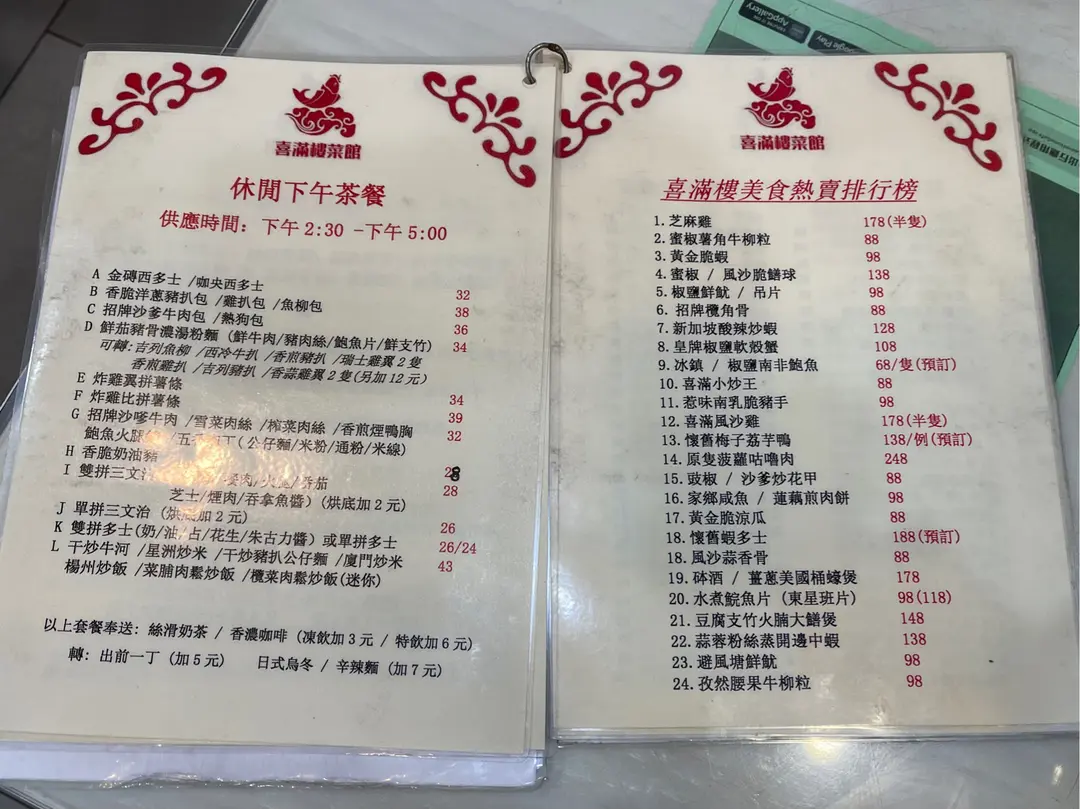 喜滿樓菜館
休閒下午茶餐
供應時間: 下午 2:30 -下午 5:00
A 金磚西多士 /咖央西多士 32
B 香脆洋蔥豬扒包 /雞扒包 /魚柳包 38
C 招牌沙爹牛肉包 /熱狗包 36
D 鮮茄豬骨濃湯粉麵 (鮮牛肉/豬肉絲/鮑魚片/鮮支竹) 34
可轉:吉列魚柳 /西冷牛扒 /香煎豬扒 /瑞士雞翼2隻
香煎雞扒 /吉列豬扒 /香蒜雞翼2隻(另加12元)
E 炸雞翼拼薯條 34
F 炸雞比拼薯條 39
G 招牌沙嗲牛肉 /雪菜肉絲 /榨菜肉絲 /香煎煙鴨胸 32
鮑魚火 /五 丁(公仔麵/米粉/通粉/米線)
H 香脆奶油豬 28
I 雙拼三文治 /番茄 28
芝士/煙肉/吞拿魚醬) (烘底加2元)
J 單拼三文治 (烘底加2元) 26
K 雙拼多士(奶/油/占/花生/朱古力醬) 或單拼多士 26/24
L 干炒牛河 /星洲炒米 /干炒豬扒公仔麵 /廈門炒米 43
楊州炒飯 /菜脯肉鬆炒飯 /欖菜肉鬆炒飯(迷你)
以上套餐奉送: 絲滑奶茶 / 香濃咖啡 (凍飲加3元 / 特飲加6元)
轉: 出前一丁 (加5元) 日式烏冬 / 辛辣麵 (加7元)
喜滿樓菜館
喜滿樓美食熱賣排行榜
1.芝麻雞 178(半隻)
2.蜜椒薯角牛柳粒 88
3.黃金脆蝦 98
4.蜜椒 / 風沙脆鱔球 138
5.椒鹽鮮魷 / 吊片 98
6. 招牌欖角骨 88
7.新加坡酸辣炒蝦 128
8.皇牌椒鹽軟殼蟹 108
9.冰鎮 / 椒鹽南非鮑魚 68/隻(預訂)
10.喜滿小炒王 88
11.惹味南乳脆豬手 98
12.喜滿風沙雞 178(半隻)
13.懷舊梅子荔芋鴨 138/例(預訂)
14.原隻菠蘿咕嚕肉 248
15.豉椒 / 沙爹炒花甲 88
16.家鄉咸魚 / 蓮藕煎肉餅 98
17.黃金脆涼瓜 88
18.懷舊蝦多士 188(預訂)
18.風沙蒜香骨 88
19.砵酒 / 薑蔥美國桶蠔煲 178
20.水煮鯇魚片 (東星班片) 98(118)
21.豆腐支竹火腩大鱔煲 148
22.蒜蓉粉絲蒸開邊中蝦 138
23.避風塘鮮魷 98
24.孜然腰果牛柳粒 98
AppGallery